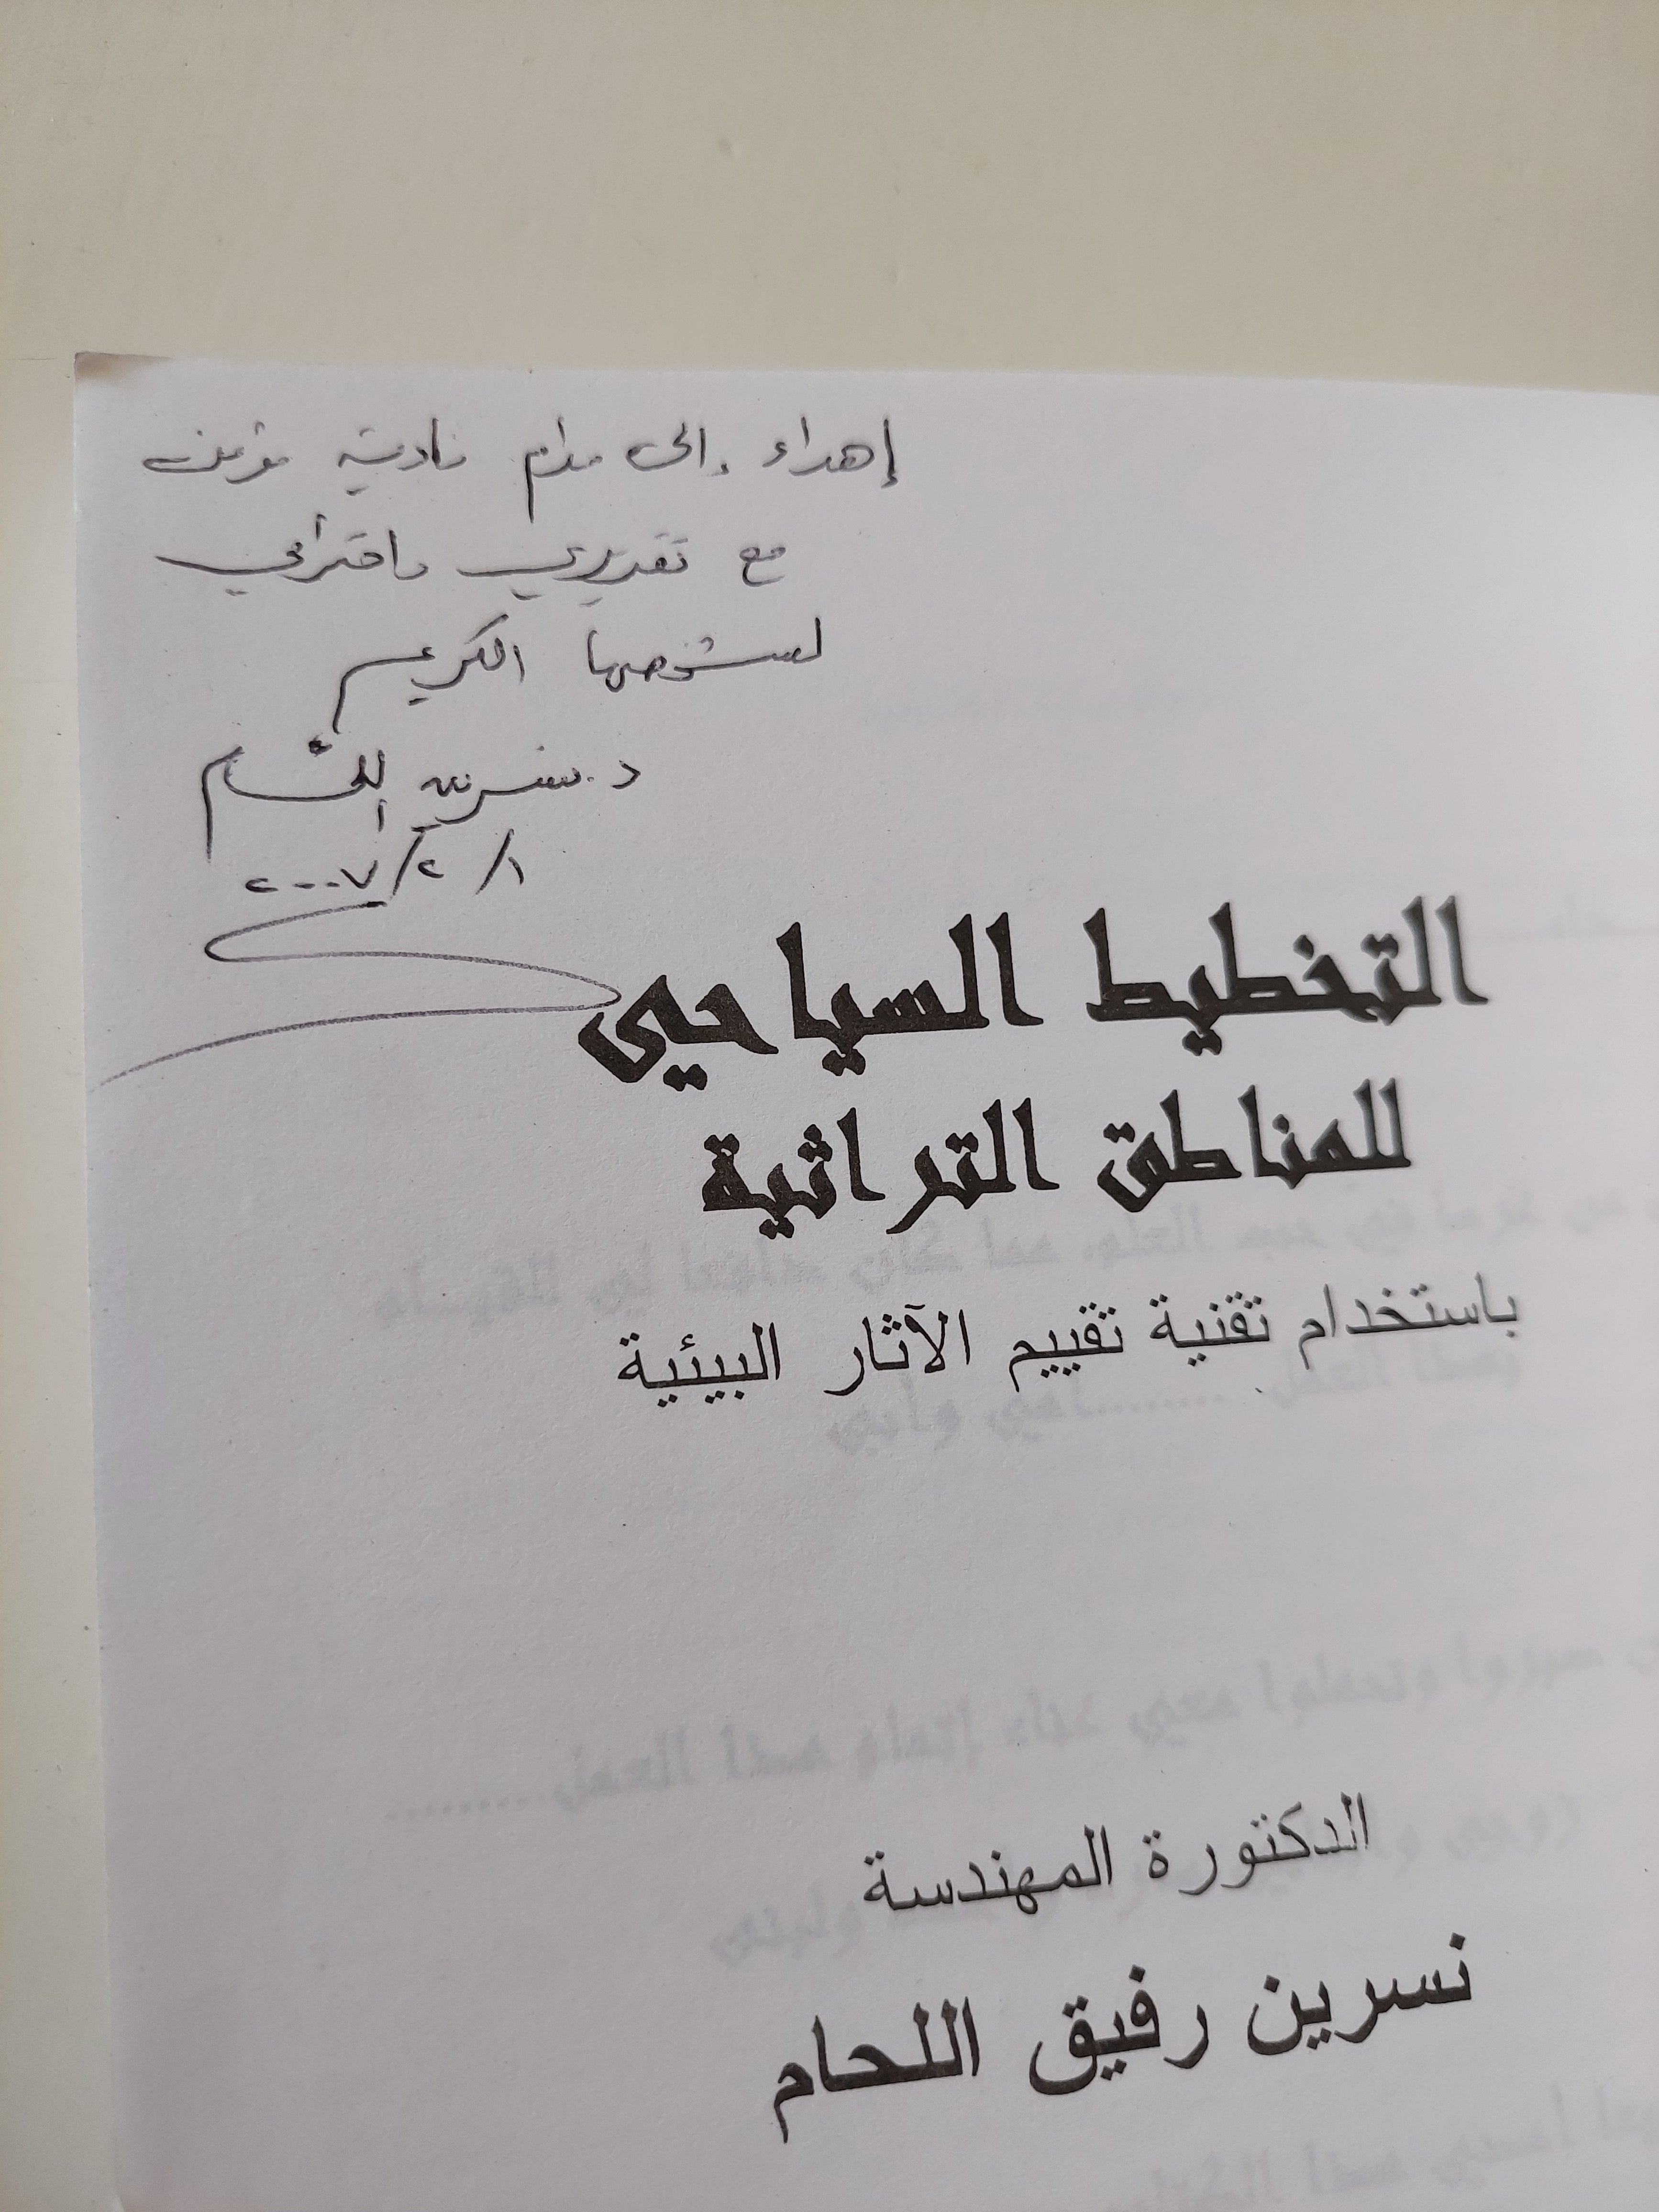 إهداء إلى مدام نادية
مع تقديري واحترامي
لشخصها الكريم
د. نسرين اللحّام
١/ ٢/ ٢٠٠٧
التخطيط السياحي
للمناطق التراثية
باستخدام تقنية تقييم الآثار البيئية
الدكتورة المهندسة
نسرين رفيق اللحام